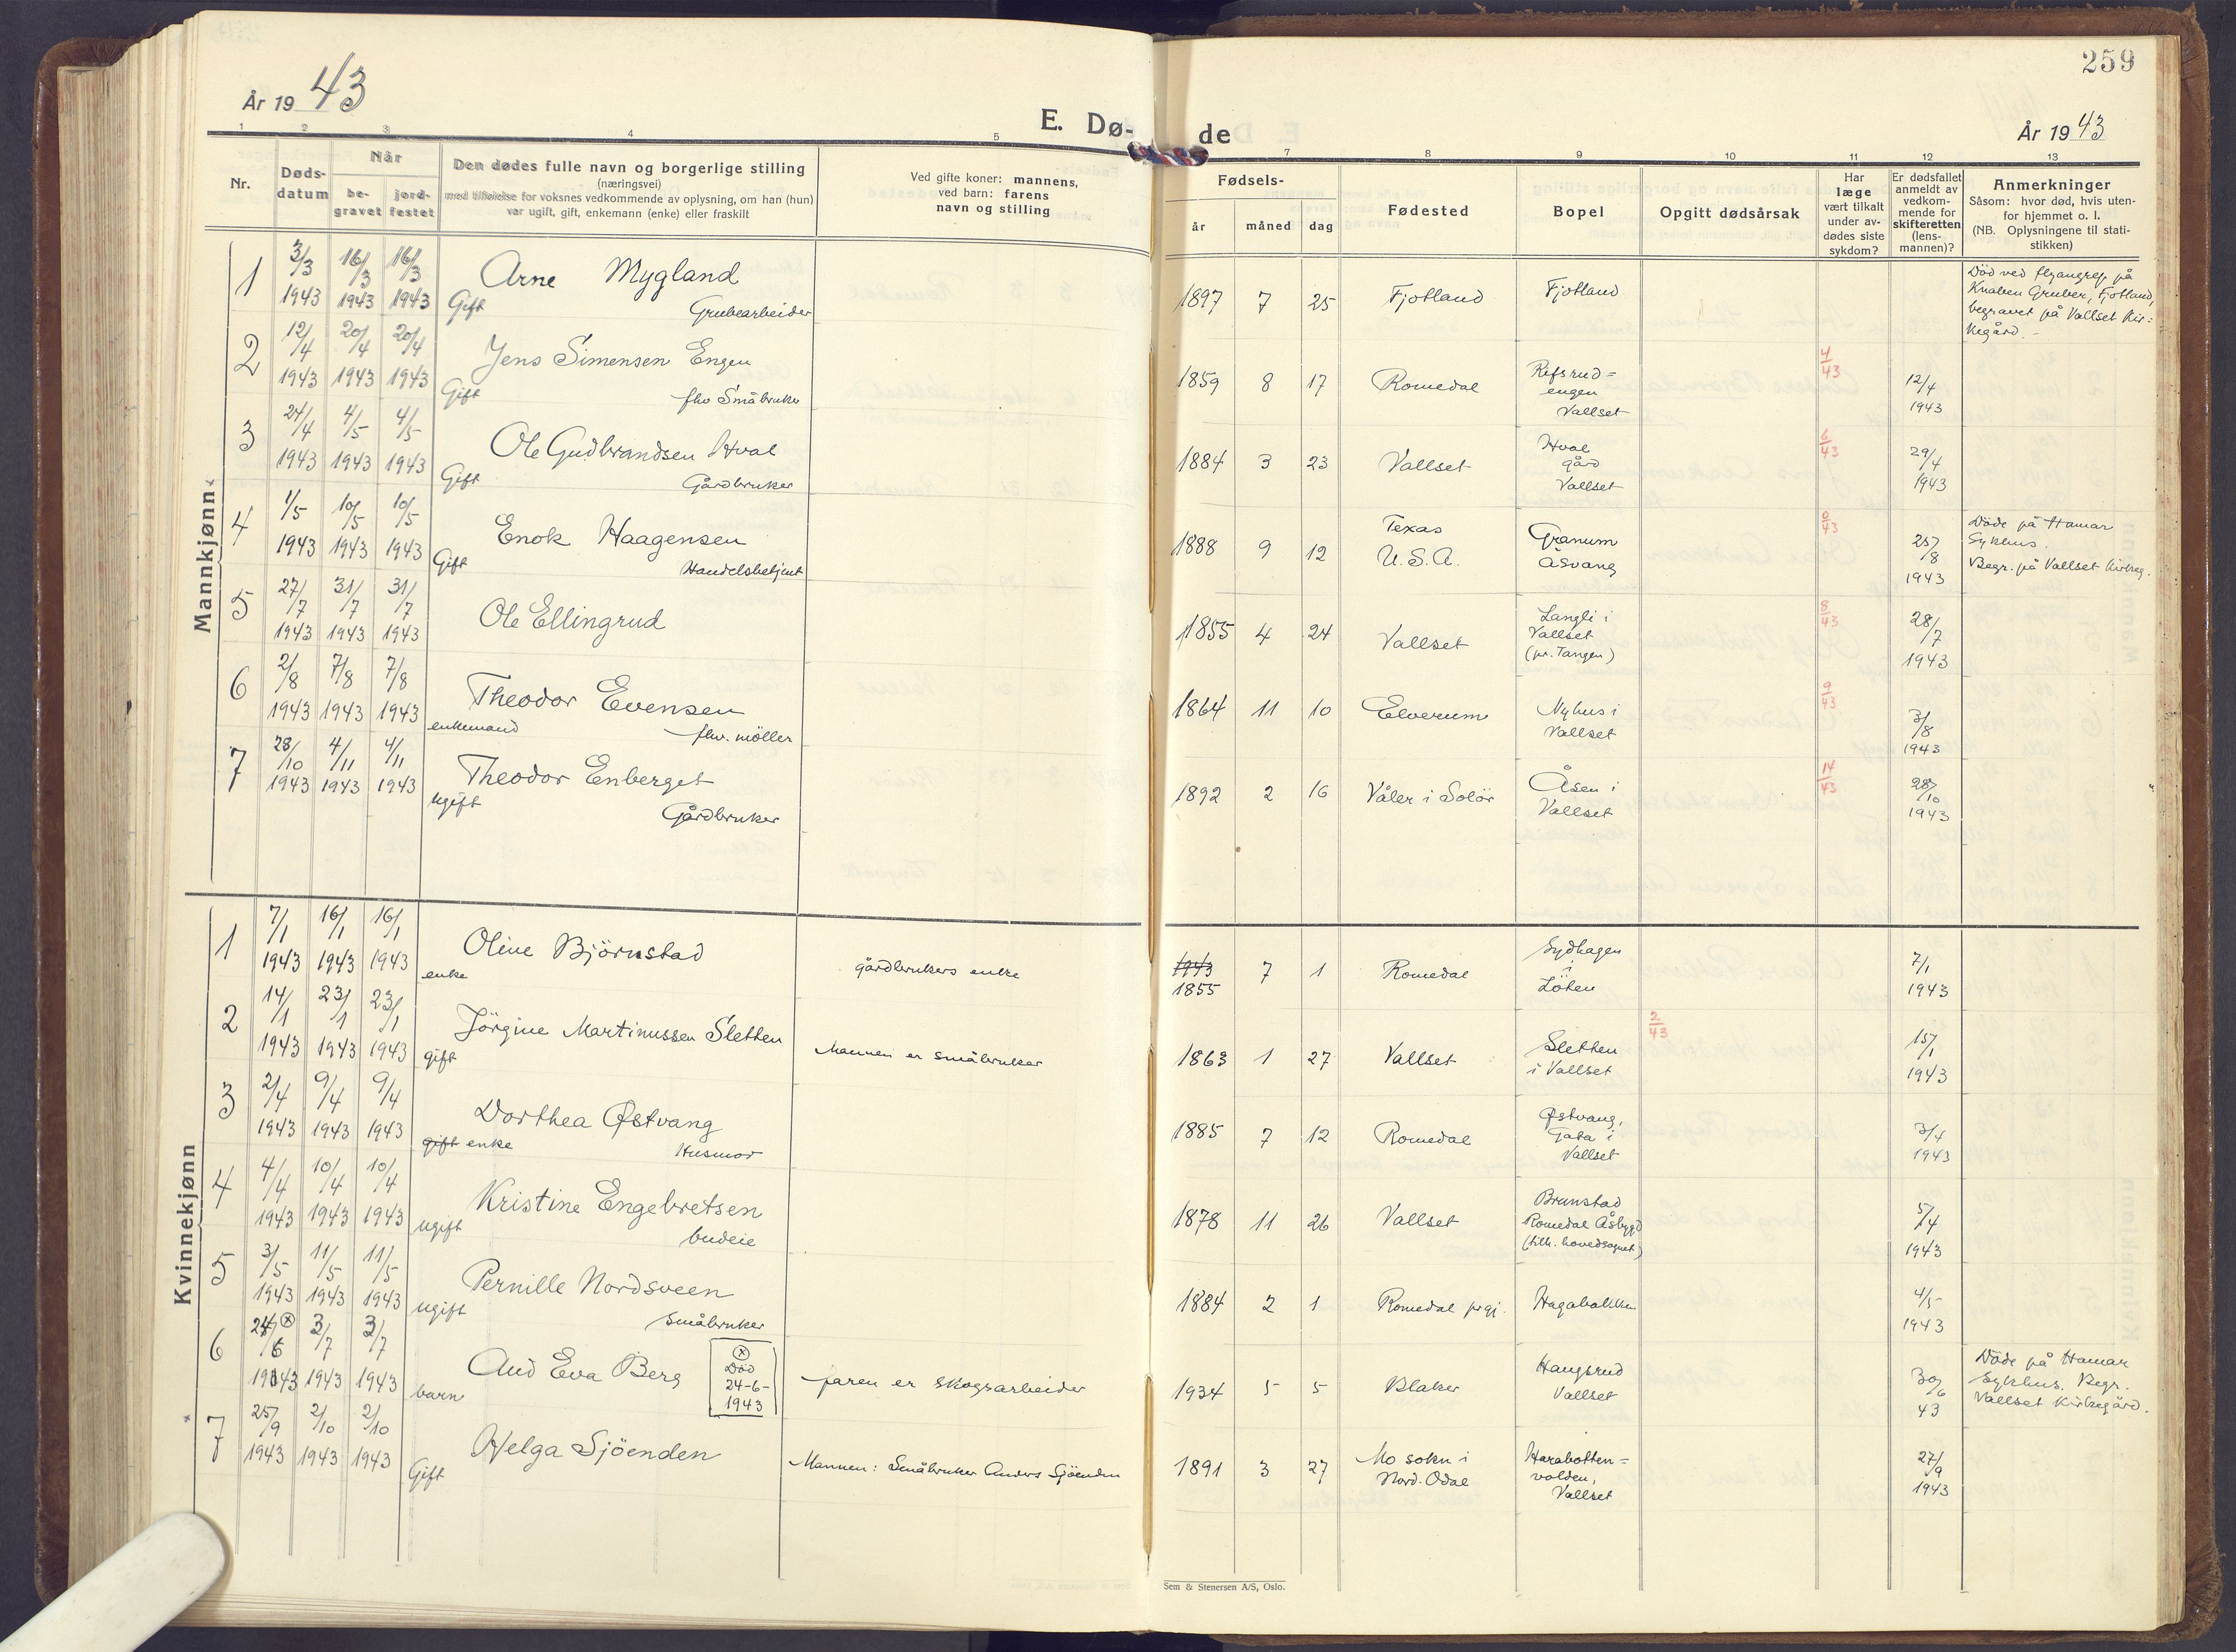 År 19 43
E. Dø-
1 2 3 4 5
Nr.
Døds-
datum
Når
be-
gravet
jord-
festet
Den dødes fulle navn og borgerlige stilling
(næringsvei)
med tilføielse for voksnes vedkommende av oplysning, om han (hun)
var ugift, gift, enkemann (enke) eller fraskilt
Ved gifte koner: mannens,
ved barn: farens
navn og stilling
Mannkjønn
1 3/3 1943 16/3 1943 16/3 1943 Arne Mygland
Gift Grubearbeider
2 12/4 1943 20/4 1943 20/4 1943 Jens Simensen Engen
Gift fhv Småbruker
3 24/4 1943 4/5 1943 4/5 1943 Ole Gudbrandsen Hval
Gift Gårdbruker
4 1/5 1943 10/5 1943 10/5 1943 Enok Haagensen
Gift Handelsbetjent
5 27/7 1943 31/7 1943 31/7 1943 Ole Ellingrud
6 2/8 1943 7/8 1943 7/8 1943 Theodor Evensen
enkemand fhv. möller
7 28/10 1943 4/11 1943 4/11 1943 Theodor Enberget
ugift Gårdbruker
Kvinnekjønn
1 7/1 1943 16/1 1943 16/1 1943 Oline Björnstad
enke gårdbrukers enke
2 14/1 1943 23/1 1943 23/1 1943 Jörgine Martinussen Sletten
gift Mannen er småbruker
3 2/4 1943 9/4 1943 9/4 1943 Dorthea Østvang
gift enke Husmor
4 4/4 1943 10/4 1943 10/4 1943 Kristine Engebretsen
ugift budeie
5 3/5 1943 11/5 1943 11/5 1943 Pernille Nordsveen
ugift Småbruker
6 24/6 ⓧ 1943 3/7 1943 3/7 1943 Aud Eva Berg
barn faren er skogsarbeider
ⓧ
Död
24-6-
1943
7 25/9 1943 2/10 1943 2/10 1943 Helga Sjöenden
Gift Mannen: Småbruker Anders Sjöenden
259
de
År 19 43
7 8 9 10 11 12 13
Fødsels-
år måned dag
Fødested
Bopel
Opgitt dødsårsak
Har
læge
vært tilkalt
under av-
dødes siste
sykdom?
Er dødsfallet
anmeldt av
vedkom-
mende for
skifteretten
(lens-
mannen)?
Anmerkninger
Såsom: hvor død, hvis uten-
for hjemmet o. l.
(NB. Oplysningene til stati-
stikken)
1897 7 25 Fjotland Fjotland
Död ved flyangrep på
Knaben Gruber, Fjotland,
begravet på Vallset Kir=
kegård. -
1859 8 17 Romedal
Refsrud=
engen
Vallset
4/43
12/4
1943
1884 3 23 Vallset
Hval
gård
Vallset
6/43
29/4
1943
1888 9 12
Texas
U.S.A.
Granum
Åsvang
0/43
25/8
1943
Döde på Hamar
Sykhus.
Begr. på Vallset Kirkeg.
1855 4 24 Vallset
Langli i
Vallset
(pr. Tangen)
8/43
28/7
1943
1864 11 10 Elverum
Nyhus i
Vallset
9/43
3/8
1943
1892 2 16 Våler i Solör
Åsen i
Vallset
14/43
28/10
1943
1943
1855 7 1 Romedal
Sydhagen
i
Löten
7/1
1943
1863 1 27 Vallset
Sletten
i Vallset
2/43
15/1
1943
1885 7 12 Romedal
Østvang,
Gata i
Vallset
3/4
1943
1878 11 26 Vallset
Brunstad
Romedal Åsbygd
(tilh. hovedsognet)
5/4
1943
1884 2 1 Romedal prgj. Hagabakken
4/5
1943
1934 5 5 Blaker
Haugsrud
Vallset
30/6
43
Döde på Hamar
Sykhus. Begr.
Vallset Kirkegård.
1891 3 27
Mo sokn i
Nord-Odal
Harabotten=
volden,
Vallset
27/9
1943
Sem & Stenersen A/S, Oslo.